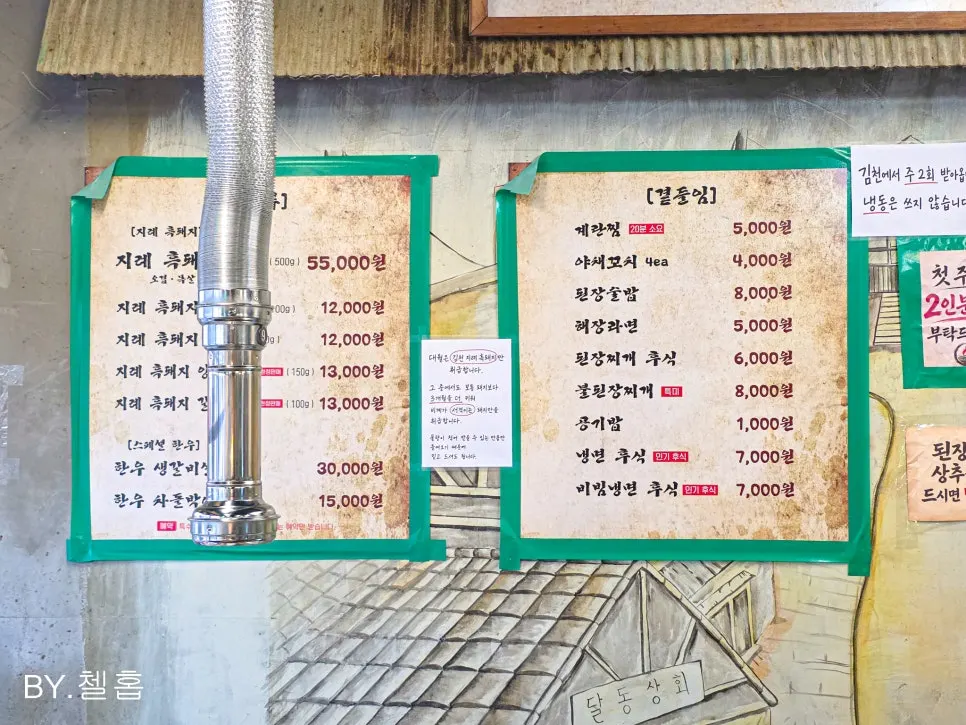 [지례 흑돼지
지례 흑돼 (500g) 55,000원
지례 흑돼지 12,000원
지례 흑돼지 12,000원
지례 흑돼지 (150g) 13,000원
지례 흑돼지 (100g) 13,000원
[스페셜 한우]
한우 생갈비살 30,000원
한우 차돌박 15,000원
예약
[곁들임]
계란찜 20분 소요 5,000원
야채꼬치 4ea 4,000원
된장술밥 8,000원
해장라면 5,000원
된장찌개 후식 6,000원
불된장찌개 특미 8,000원
공기밥 1,000원
냉면 후식 인기 후식 7,000원
비빔냉면 후식 인기 후식 7,000원
대월은 김천 지례 흑돼지만
취급합니다.
그 중에서도 보통 돼지보다
3개월을 더 키워
비계가 돼지만을
취급합니다.
김천에서 주 2회 받아옵
냉동은 쓰지 않습니다
첫 주
2인분
부탁드
된장
상추
드시면
달동상회
BY.첼홉